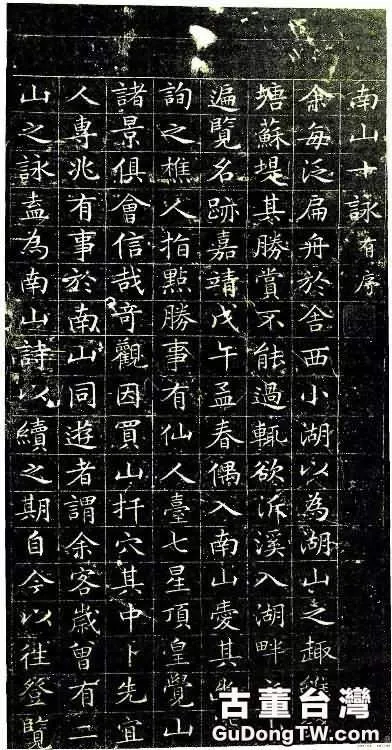 南山十詠有序
余每泛扁舟於舍西小湖以為湖山之趣
塘蘇堤其勝賞不能過輒欲泝溪入湖畔
遍覽名跡嘉靖戊午孟春偶入南山愛其
詢之樵人指點勝事有仙人臺七星頂皇覺山
諸景俱會信哉奇觀因買山扦穴其中卜先宜
人專兆有事於南山同遊者謂余客歲曾有二
山之詠盍為南山詩以續之期自今以往登覽
古董台灣
GuDongTW.com